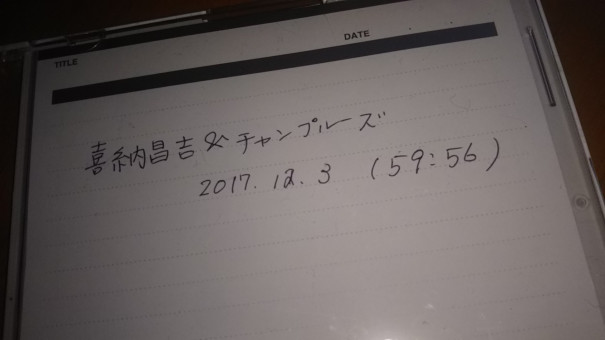 TITLE
DATE
喜納昌吉&チャンプルーズ
2017.12.3 (59:56)